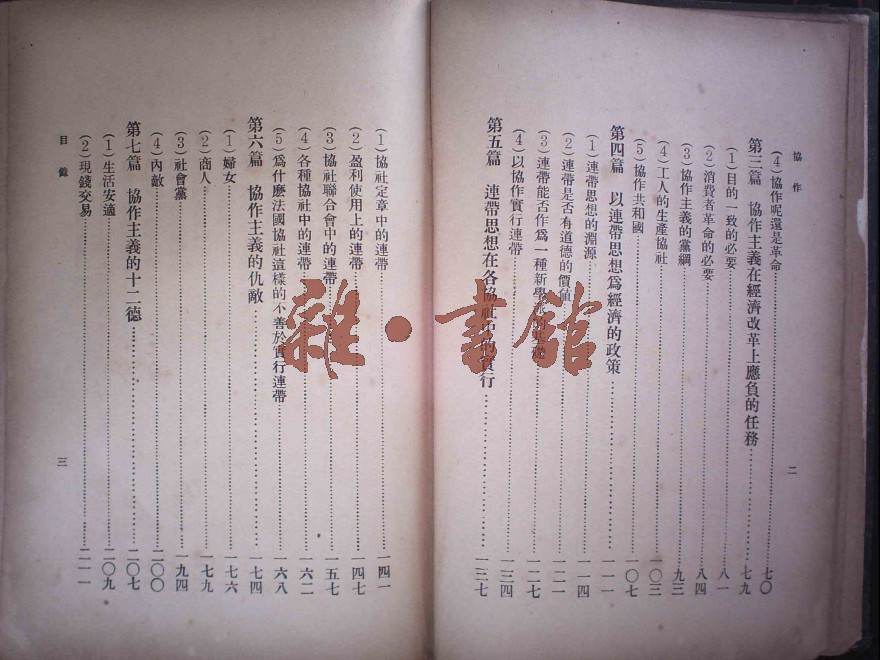 協作
(4)協作呢還是革命……七〇
第三篇 協作主義在經濟改革上應負的任務……七九
(1)目的一致的必要……八一
(2)消費者革命的必要……八四
(3)協作主義的黨綱……九三
(4)工人的生產協社……一〇三
(5)協作共和國……一〇七
第四篇 以連帶思想爲經濟的政策……一一一
(1)連帶思想的淵源……一一四
(2)連帶是否有道德的價値……一二一
(3)連帶能否作爲一種新學……一二七
(4)以協作實行連帶……一三四
第五篇 連帶思想在各協社中的實行……一三七
二
(1)協社定章中的連帶……一四一
(2)盈利使用上的連帶……一四七
(3)協社聯合會中的連帶……一五七
(4)各種協社中的連帶……一六二
(5)爲什麽法國協社這樣的不善於實行連帶……一六八
第六篇 協作主義的仇敵……一七四
(1)婦女……一七六
(2)商人……一七九
(3)社會黨……一九四
(4)內敵……二〇〇
第七篇 協作主義的十二德……二〇七
(1)生活安適……二〇九
(2)現錢交易……二一一
目錄
三
雜·書館